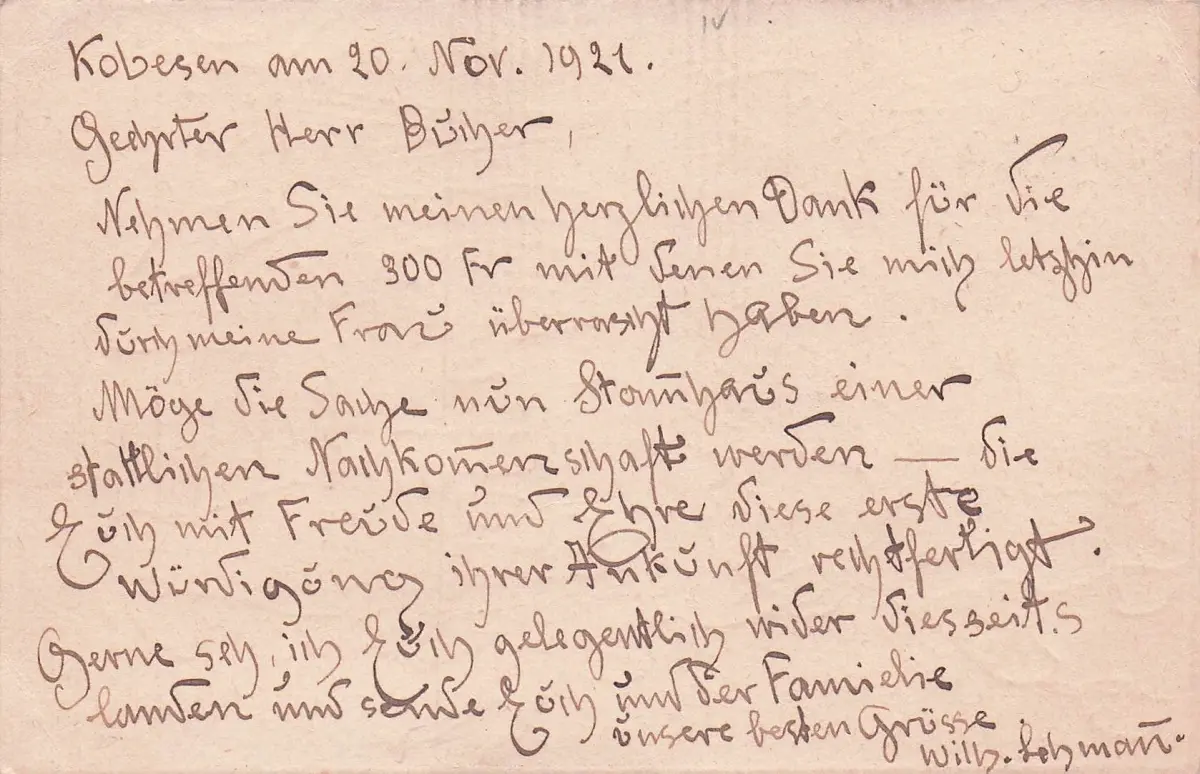 IV
Kobesen am 20. Nov. 1921.
Geehrter Herr Bücher,
Nehmen Sie meinen herzlichen Dank für die
betreffenden 300 Fr mit denen Sie mich letzhin
durch meine Frau überrascht haben.
Möge die Sache nun Stam̅haus einer
stattlichen Nachkom̅enschaft werden — die
Euch mit Freude und Ehre diese erste
Würdigung ihrer Ankunft rechtfertigt.
Gerne seh, ich Euch gelegentlich wider diesseits
landen und sende Euch und der Familie
unsere besten Grüsse.
Wilh. Lehman̅.